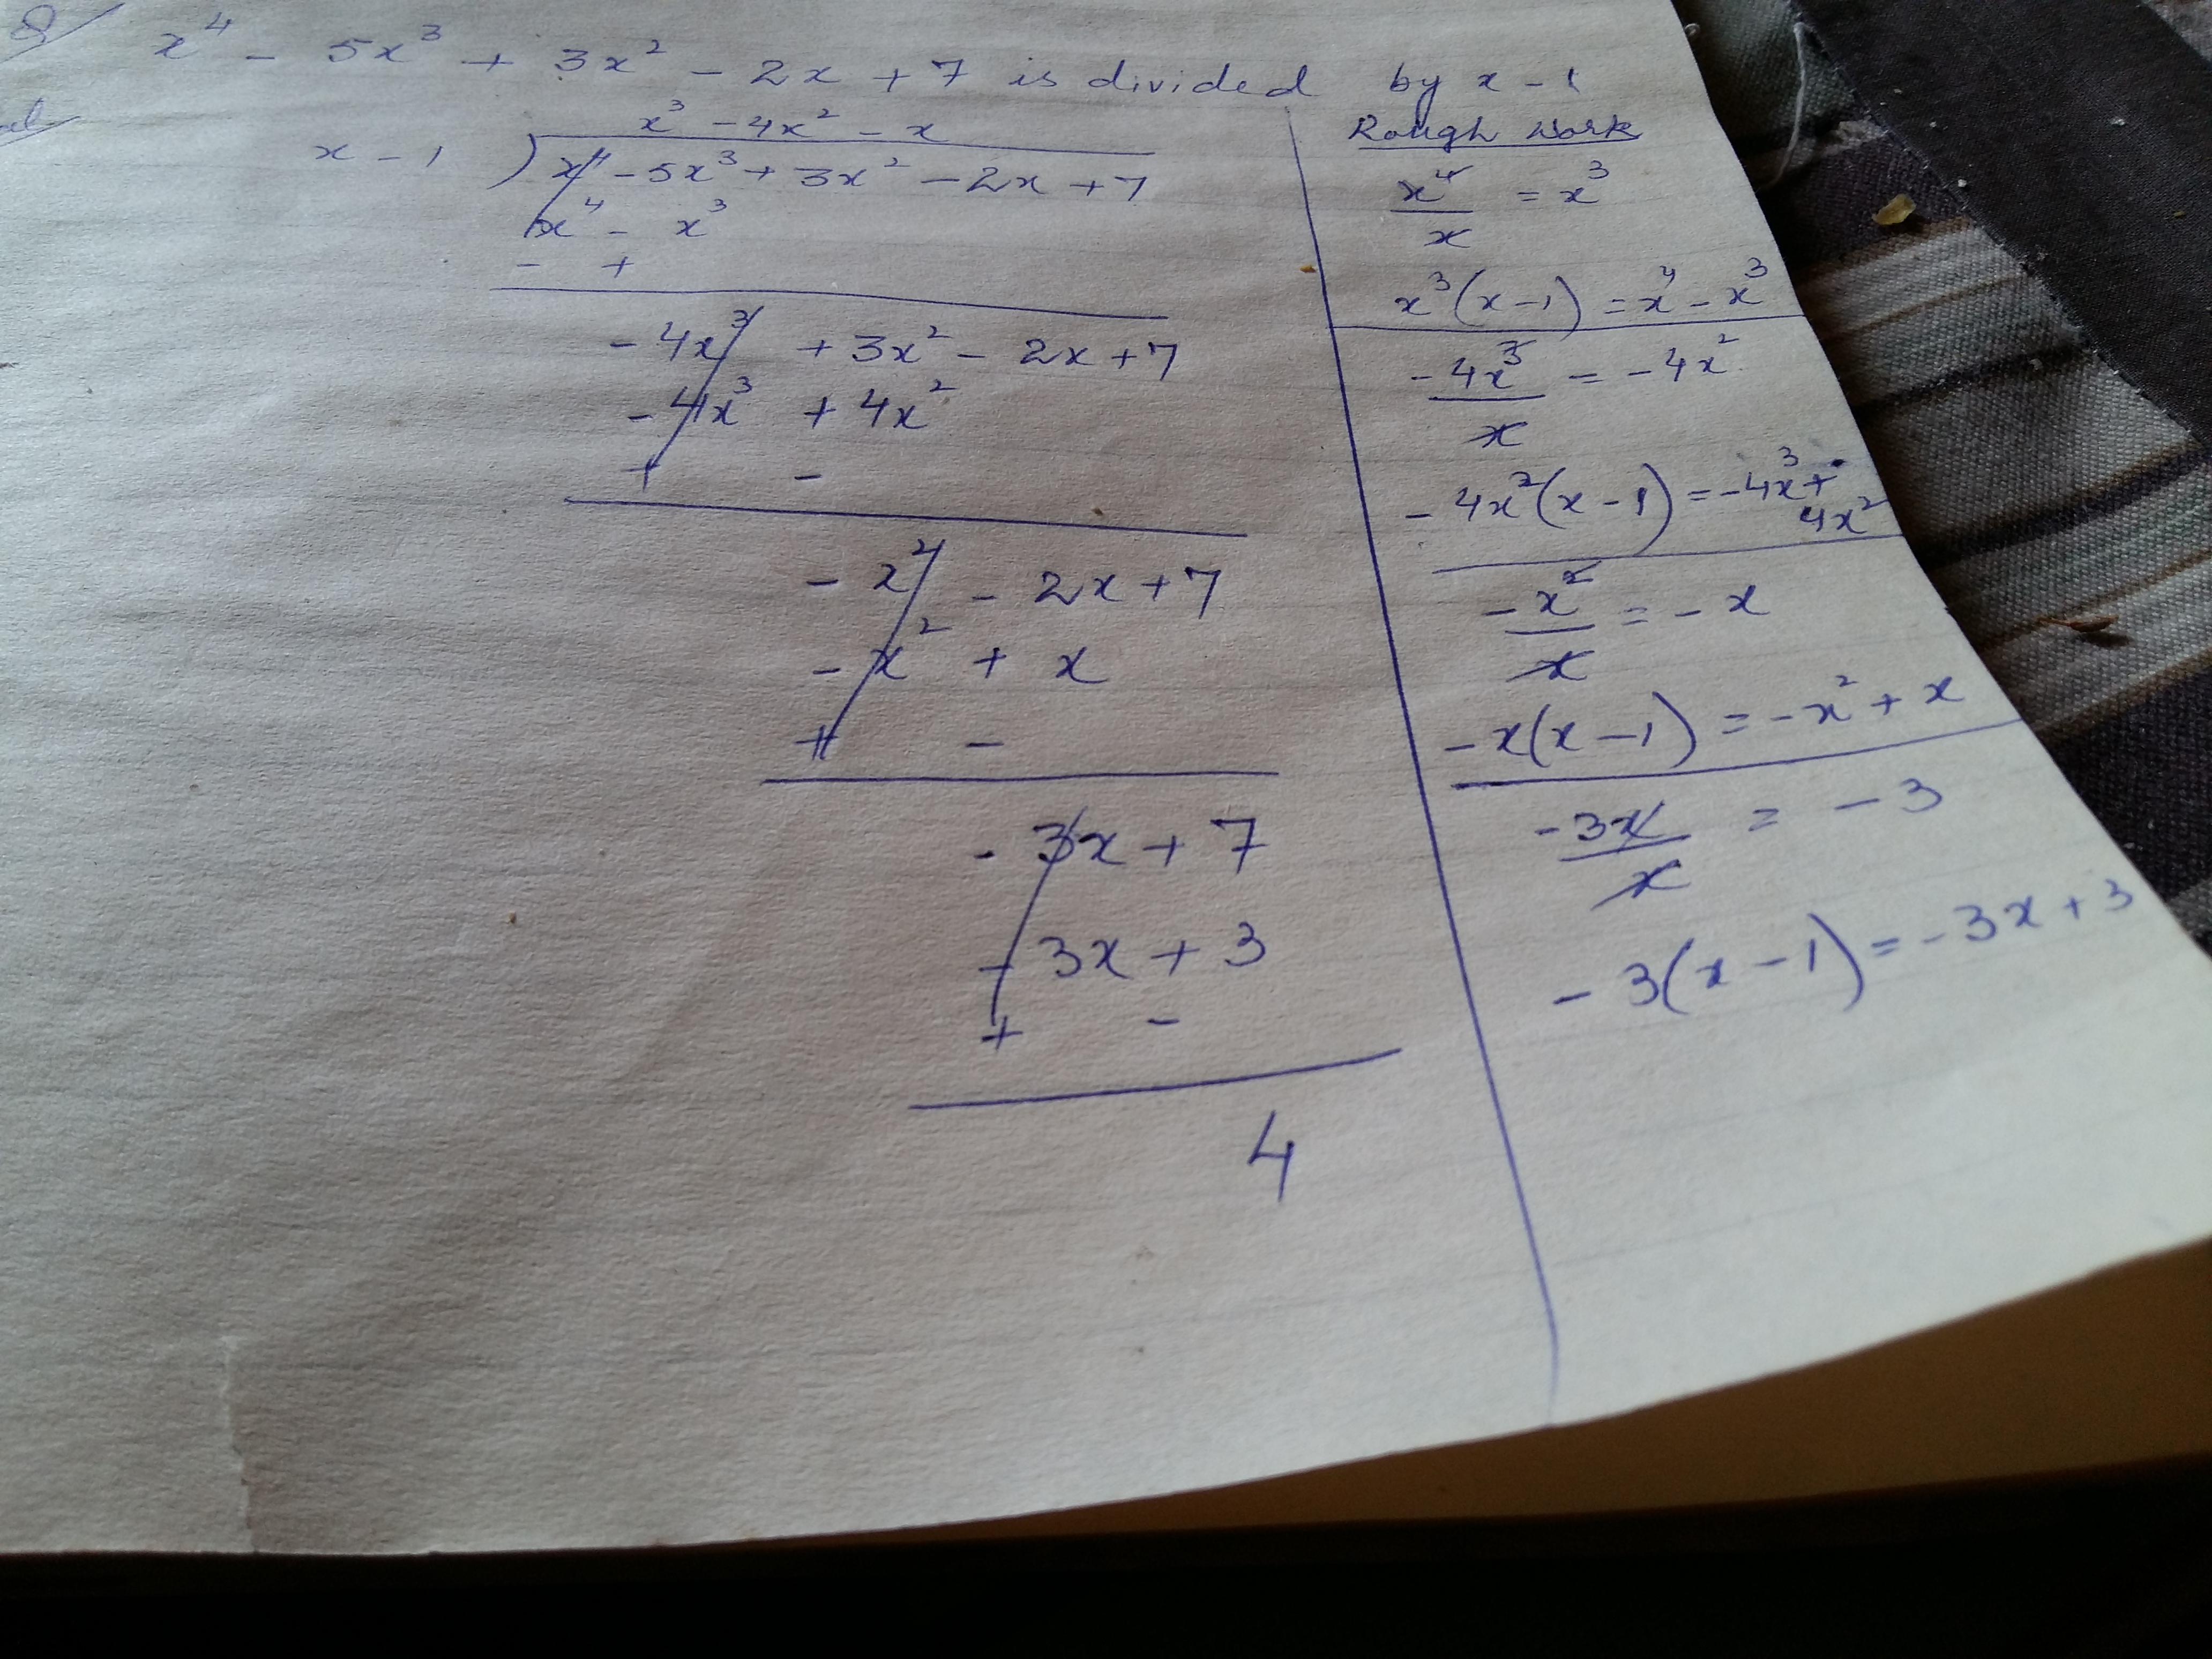 Q
x⁴ - 5x³ + 3x² - 2x + 7 is divided by x - 1
x³ - 4x² - x
x - 1 ) x⁴ - 5x³ + 3x² - 2x + 7
x⁴ - x³
- +
- 4x³ + 3x² - 2x + 7
- 4x³ + 4x²
+ -
- x² - 2x + 7
- x² + x
+ -
- 3x + 7
- 3x + 3
+ -
4
Rough Work
x⁴/x = x³
x³(x-1) = x⁴ - x³
-4x³/x = -4x²
- 4x²(x-1) = -4x³ +
4x²
-x²/x = - x
-x(x-1) = -x² + x
-3x/x = - 3
- 3(x-1) = -3x + 3